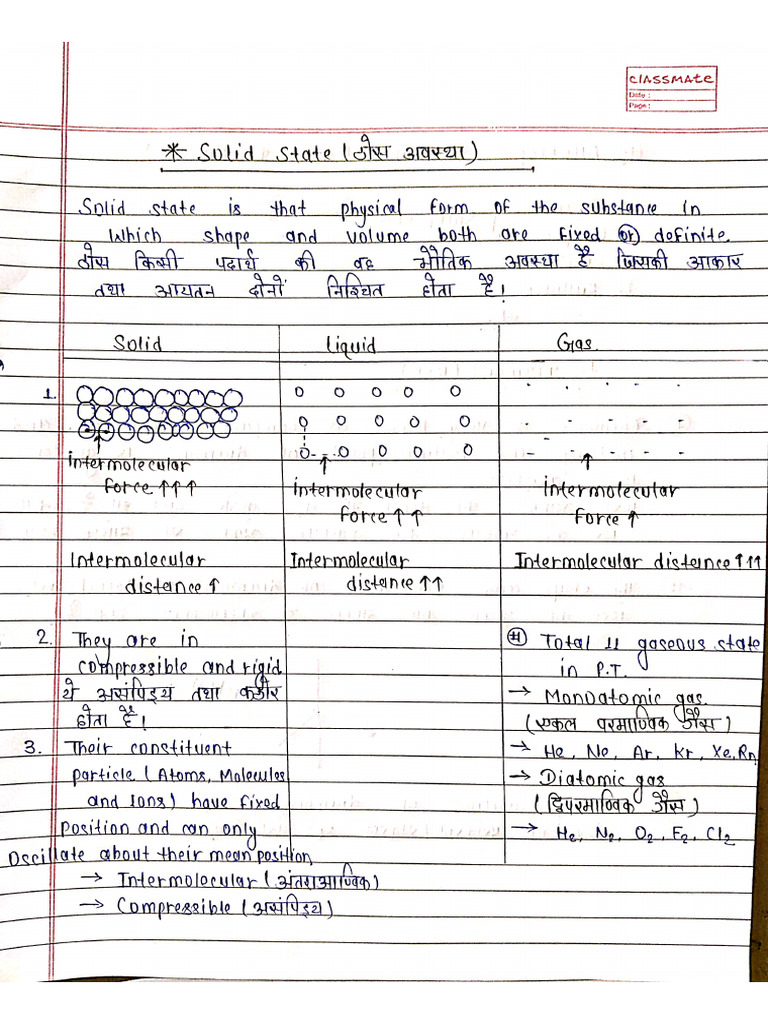 CLASSMATE
Date :
Page :
* Solid State (ठोस अवस्था)
Solid state is that physical form of the substance in
which shape and volume both are fixed (or) definite.
ठोस किसी पदार्थ की वह भौतिक अवस्था है जिसकी आकार
तथा आयतन दोनों निश्चित होता है।
Solid
Liquid
Gas
1.
Intermolecular
force ↑↑↑
Intermolecular
distance ↑
Intermolecular
force ↑↑
Intermolecular
distance ↑↑
Intermolecular
force ↑
Intermolecular distance ↑↑↑
2. They are in
compressible and rigid
ये असंपिड्य तथा कठोर
होता है।
3. Their constituent
particle (Atoms, Molecules
and Ions) have fixed
position and can only
Oscillate about their mean position
→ Intermolecular (अंतराआण्विक)
→ Compressible (असंपिड्य)
(#) Total 11 gaseous state
in P.T.
→ Monoatomic gas
(एकल परमाण्विक गैस)
→ He, Ne, Ar, Kr, Xe, Rn
→ Diatomic gas
(द्विपरमाण्विक गैस)
→ He, N2, O2, F2, Cl2